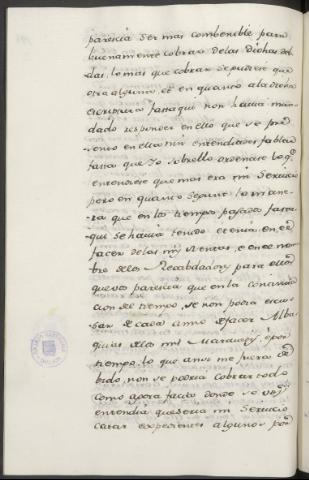 parecia ser mas combenible para
buenamente cobrar delas Dichas deb-
das, lo mas que cobrar se pudiese que
otra alguna, et en quanto a la dicha
escriptura fasta qui non havia man-
dado responder en ello que se pro
venio en ello nin entendiades fablar
fasta que Yo sobrello ordenare lo q.e
entendiese que mas era mi Servicio
pero en quanto separe la mane-
ra que en los tiempos pasados fasta
qui se havia tenido et tenia en, el
facer delas mis Rentas, e en el nom-
bro delos Recabdadores para ellas
que vos parecia que en la continua-
cion del tiempo, se non podia escu-
sar de cada anno defacer Alba
quias delos mil Maravedis, e por
tiempo, lo que a mi me fuera de-
bido, non se podria cobrar todo
como agora fasta donde se vos
entendia que seria mi Servicio
catar expedientes algunos por